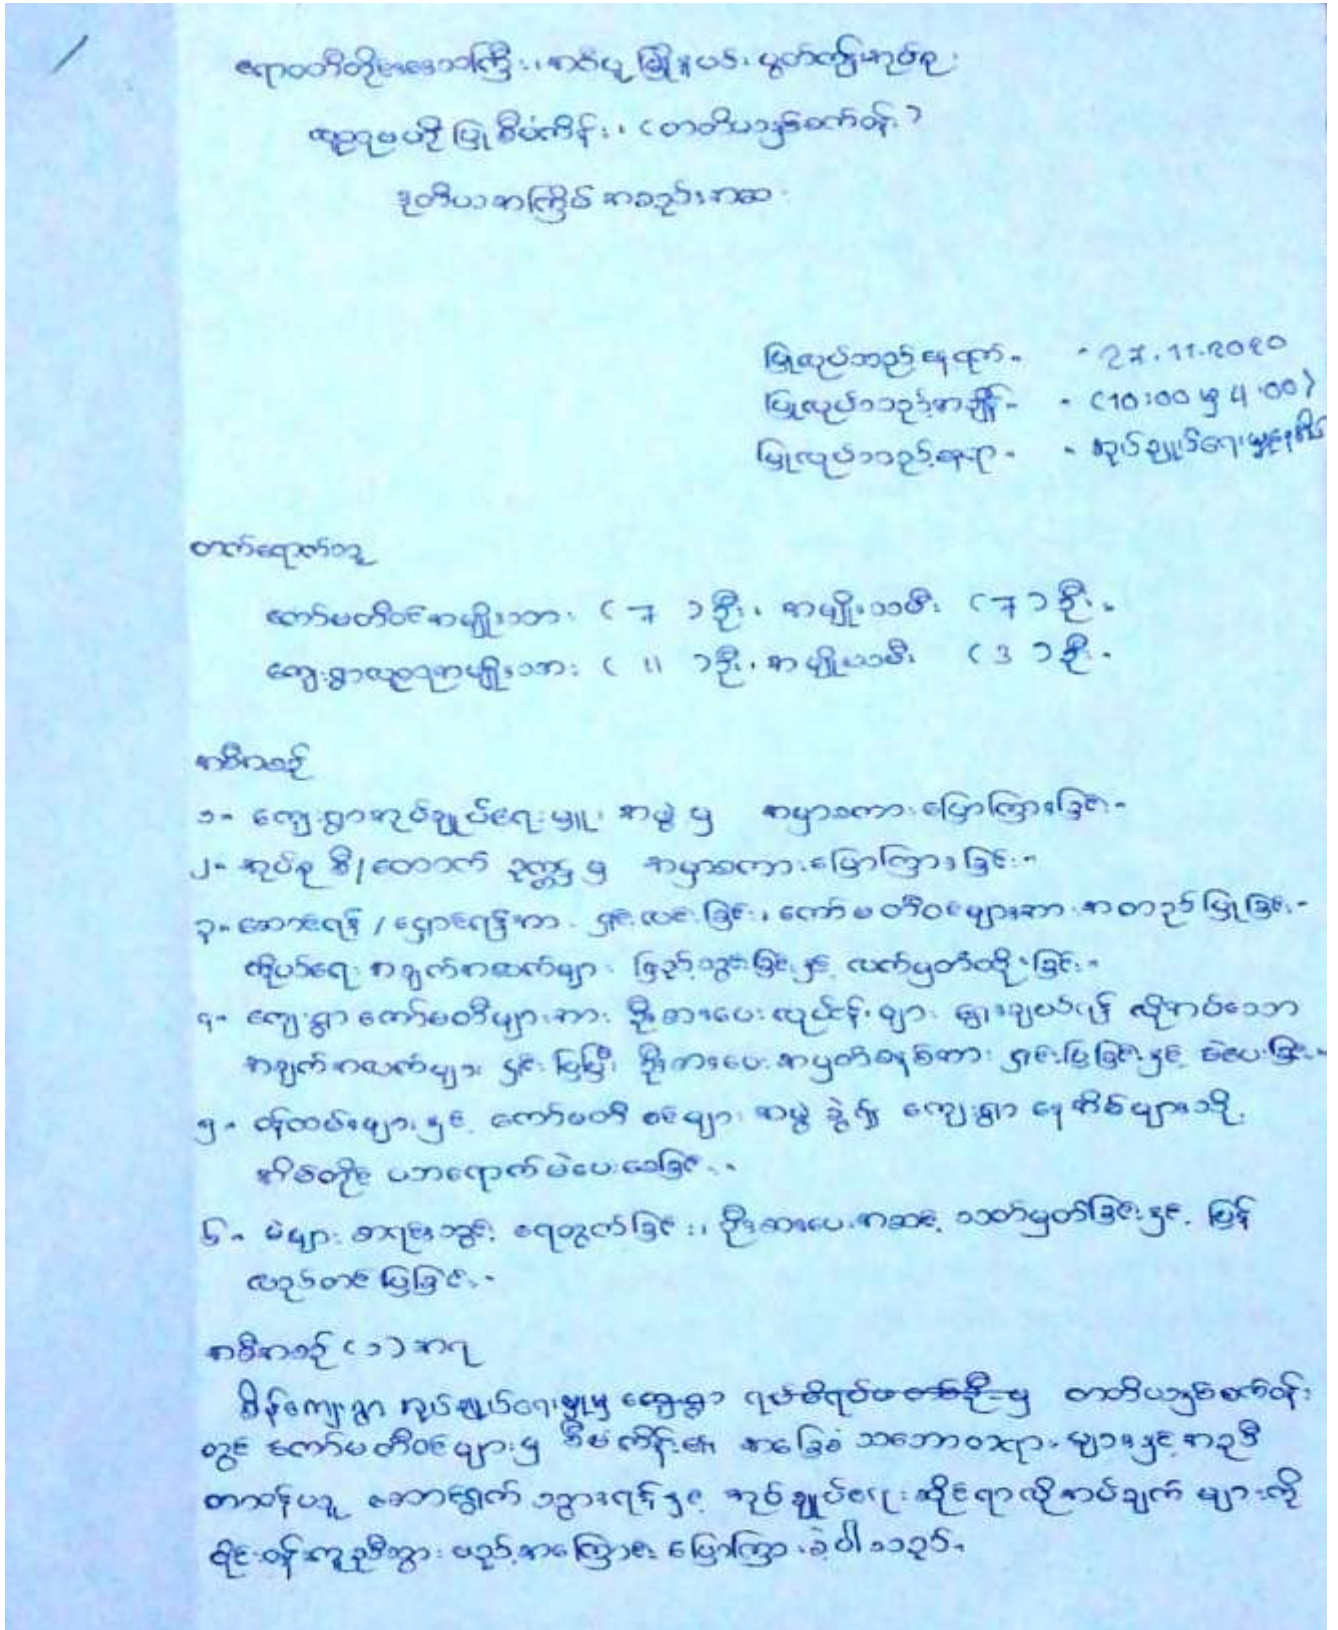 ဧရာဝတီတိုင်းဒေသကြီး၊ အင်္ဂပူမြို့နယ်၊ မွတ်ကျွန်းအုပ်စု
လူထုဗဟိုပြုစီမံကိန်း၊ (တတိယနှစ်စက်ဝန်း)
ဒုတိယအကြိမ် အစည်းအဝေး
ပြုလုပ်သည့်နေ့ရက် - 27.11.2020
ပြုလုပ်သည့်အချိန် - (10:00 မှ 4:00)
ပြုလုပ်သည့်နေရာ - အုပ်ချုပ်ရေးမှူးနေအိမ်
တက်ရောက်သူ
ကော်မတီဝင်အမျိုးသား (7) ဦး၊ အမျိုးသမီး (7) ဦး
ကျေးရွာလူထုအမျိုးသား (11) ဦး၊ အမျိုးသမီး (3) ဦး
အစီအစဉ်
၁- ကျေးရွာအုပ်ချုပ်ရေးမှူး အဖွဲ့မှ အမှာစကားပြောကြားခြင်း
၂- အုပ်စု စီ/ထောက် ဥက္ကဋ္ဌမှ အမှာစကားပြောကြားခြင်း
၃- ဆောင်ရန်/ရှောင်ရန်အား ရှင်းလင်းခြင်း၊ ကော်မတီဝင်များအား အတည်ပြုခြင်း
ကိုယ်ရေးအချက်အလက်များ ဖြည့်သွင်းခြင်းနှင့် လက်မှတ်ထိုးခြင်း
၄- ကျေးရွာကော်မတီများအား ဦးစားပေးလုပ်ငန်းများ ရွေးချယ်ရန် လိုအပ်သော
အချက်အလက်များ ရှင်းပြပြီး ဦးစားပေးအမှတ်စနစ်အား ရှင်းပြခြင်းနှင့် မဲပေးခြင်း
၅- ဝန်ထမ်းများနှင့် ကော်မတီဝင်များ အဖွဲ့ခွဲ၍ ကျေးရွာနေအိမ်များသို့
အိမ်တိုင်ယာရောက် မဲပေးစေခြင်း
၆- မဲများ စာရင်းသွင်း ရေတွက်ခြင်း၊ ဦးစားပေးအဆင့် သတ်မှတ်ခြင်းနှင့် ပြန်
လည်တင်ပြခြင်း
အစီအစဉ် (၁) အရ
စိန်ကျေးရွာ အုပ်ချုပ်ရေးမှူးမှ တတိယနှစ်စက်ဝန်း
တွင် ကော်မတီဝင်များမှ စီမံကိန်း၏ အခြေခံသဘောတရားများနှင့်အညီ
တာဝန်ယူ ဆောင်ရွက်သွားရန်နှင့် အုပ်ချုပ်ရေးဆိုင်ရာလိုအပ်ချက်များကို
ဝိုင်းဝန်းကူညီသွားမည့်အကြောင်း ပြောကြားခဲ့ပါသည်။